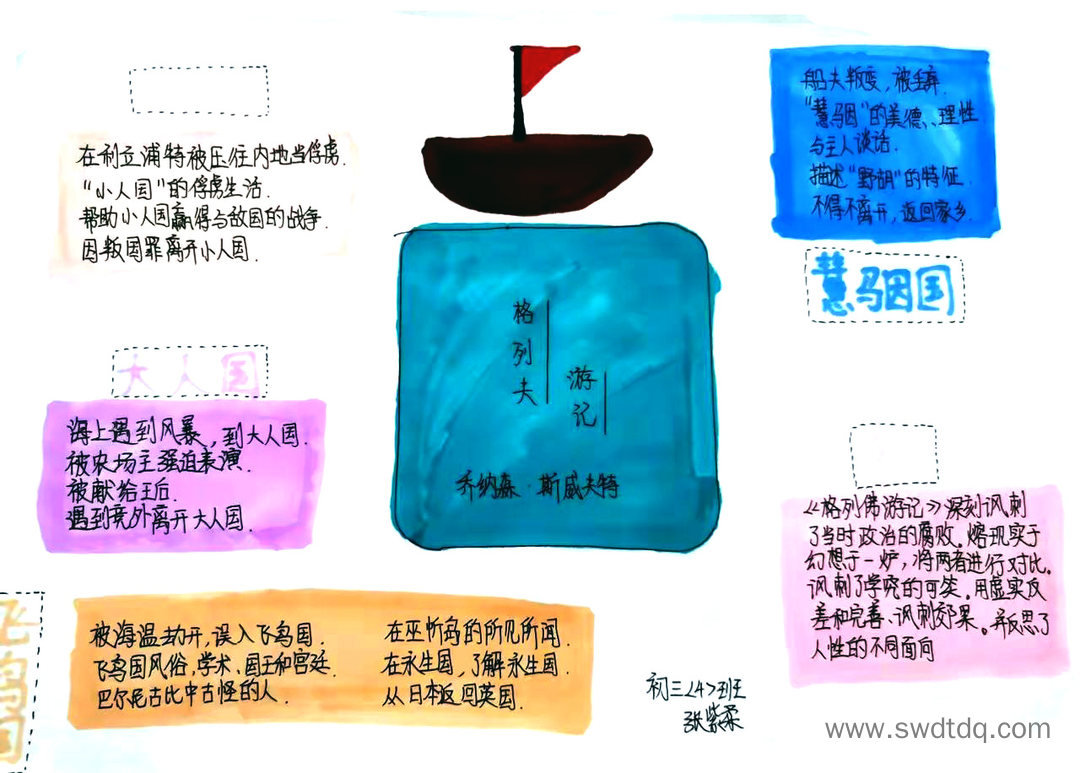 在利立浦特被压往内地当俘虏.
“小人国”的俘虏生活.
帮助小人国赢得与敌国的战争.
因叛国罪离开小人国.
大人国
海上遇到风暴, 到大人国.
被农场主强迫表演.
被献给王后.
遇到意外离开大人国.
飞鸟国
被海温劫开, 误入飞鸟国.
飞鸟国风俗, 学术、国王和宫廷.
巴尔尼古比中古怪的人.
在巫忻岛的所见所闻.
在永生国, 了解永生国.
从日本返回英国.
格列夫
游记
乔纳森·斯威夫特
船夫叛变, 被丢弃.
“慧骃”的美德、理性
与主人谈话.
描述“野胡”的特征.
不得不离开, 返回家乡.
慧骃国
《格列佛游记》深刻讽刺
了当时政治的腐败. 熔现实于
幻想于一炉, 将两者进行对比.
讽刺了学究的可笑. 用虚实反
差和完善、讽刺郊果. 并反思了
人性的不同面向
初三<4>班
张紫柔
www.swdtdq.com